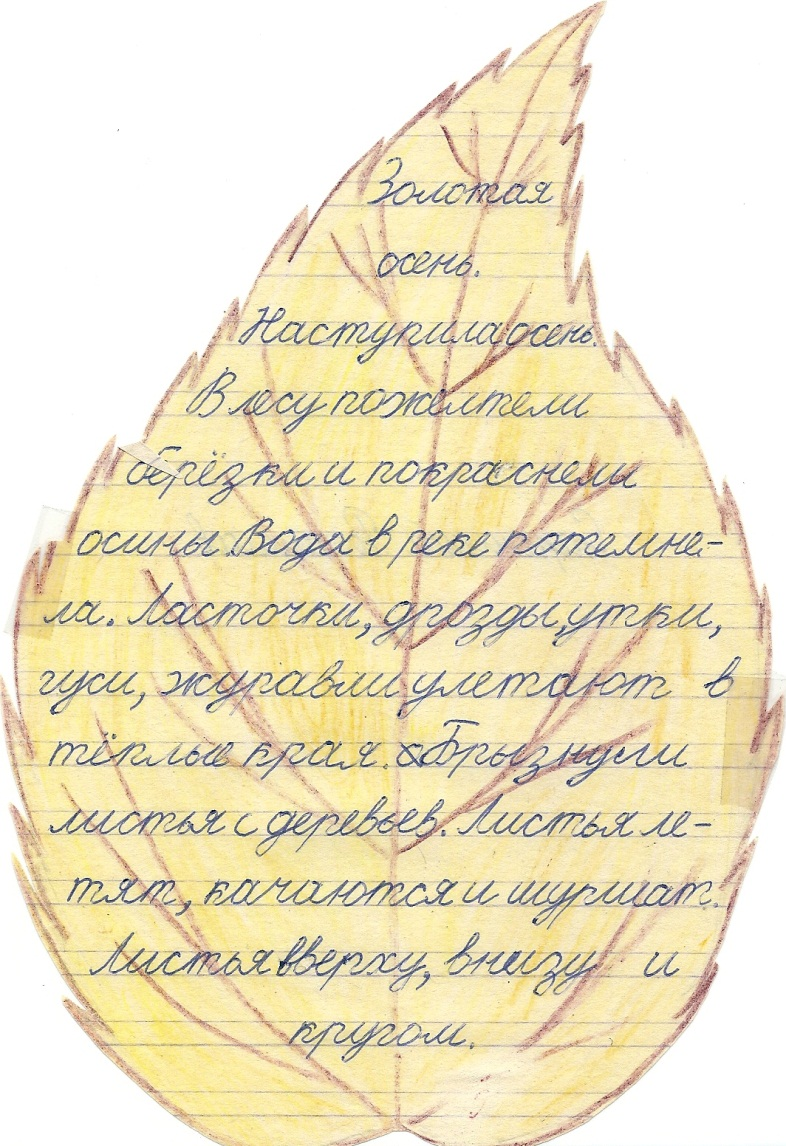 Золотая
осень.
Наступила осень.
В лесу пожелтели
берёзки и покраснели
осины. Вода в реке потемне-
ла. Ласточки, дрозды, утки,
гуси, журавли улетают в
тёплые края. Брызнули
листья с деревьев. Листья ле-
тят, качаются и шуршат.
Листья вверху, внизу и
кругом.